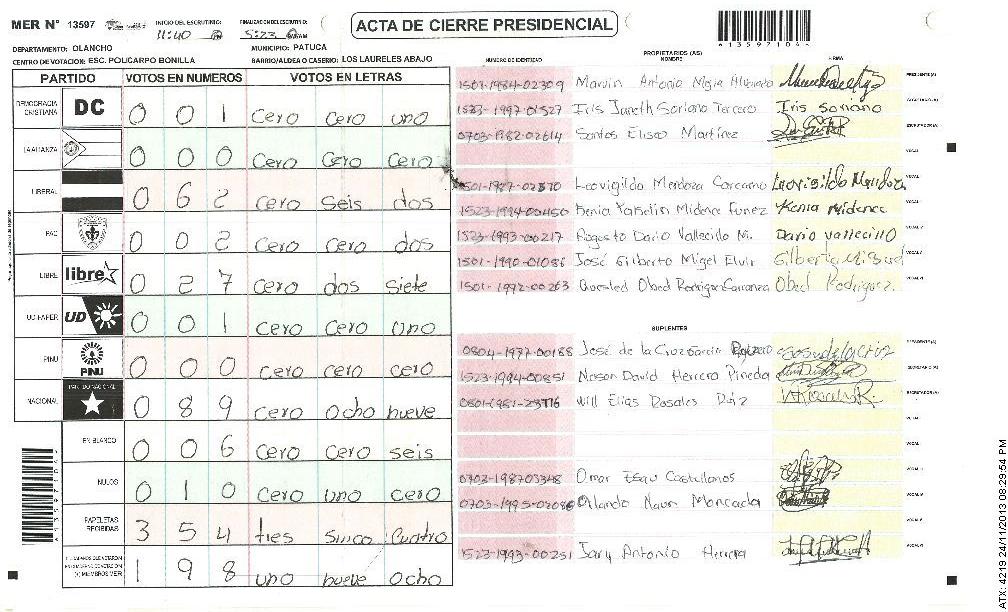 MER N° 13597
INICIO DEL ESCRUTINIO: 11:40
FINALIZACION DEL ESCRUTINIO: 5:23
ACTA DE CIERRE PRESIDENCIAL
DEPARTAMENTO: OLANCHO
MUNICIPIO: PATUCA
CENTRO DE VOTACION: ESC. POLICARPO BONILLA
BARRIO/ALDEA O CASERIO: LOS LAURELES ABAJO
PARTIDO VOTOS EN NUMEROS VOTOS EN LETRAS
DEMOCRACIA CRISTIANA DC 0 0 1 Cero Cero uno
LA ALIANZA 0 0 0 Cero Cero Cero
LIBERAL 0 6 2 Cero seis dos
PAC 0 0 2 Cero Cero dos
LIBRE libre 0 2 7 Cero dos siete
UD FAPER UD 0 0 1 Cero Cero Uno
PINU PINU 0 0 0 Cero cero cero
NACIONAL PARTIDO NACIONAL 0 8 9 Cero Ocho nueve
EN BLANCO 0 0 6 Cero Cero seis
NULOS 0 1 0 Cero uno cero
PAPELETAS RECIBIDAS 3 5 4 tres sinco Cuatro
1 9 8 uno nueve Ocho
PROPIETARIOS (AS)
NUMERO DE IDENTIDAD NOMBRE FIRMA
1501-1984-02309 Marvin Antonio Mejia PRESIDENTE(A)
1523-1997-01527 Iris Janeth Soriano Tercero Iris Soriano SECRETARIO(A)
0703-1982-02614 Santos Eliseo Martinez ESCRUTADOR(A)
VOCAL
1501-1987-02870 Leovigildo Mendoza Leovigildo Mendoza
1523-1994-00450 Kenia Yakselin Midence Funez Kenia Midence
1523-1993-00217 Rogasto Dario Vallecillo M. Dario vallecillo
1501-1990-01086 José Gilberto Migel Gilberto Miguel
1501-1992-00263 Obed Obed Rodriguez
SUPLENTES
0804-1977-00188 José de la Cruz Garcia PRESIDENTE(A)
1523-1994-00851 Nelson David Herrera Pineda SECRETARIO(A)
0801-1981-23776 Will Elias Rosales Diaz ESCRUTADOR(A)
VOCAL
VOCAL
0703-198703348 Omar Esau Castellanos
0703-1995-02080 Orlando Naun Moncada
1523-1993-00251 Jary Antonio Herrera
ATX: 4219 24/11/2013 08:29:54 PM